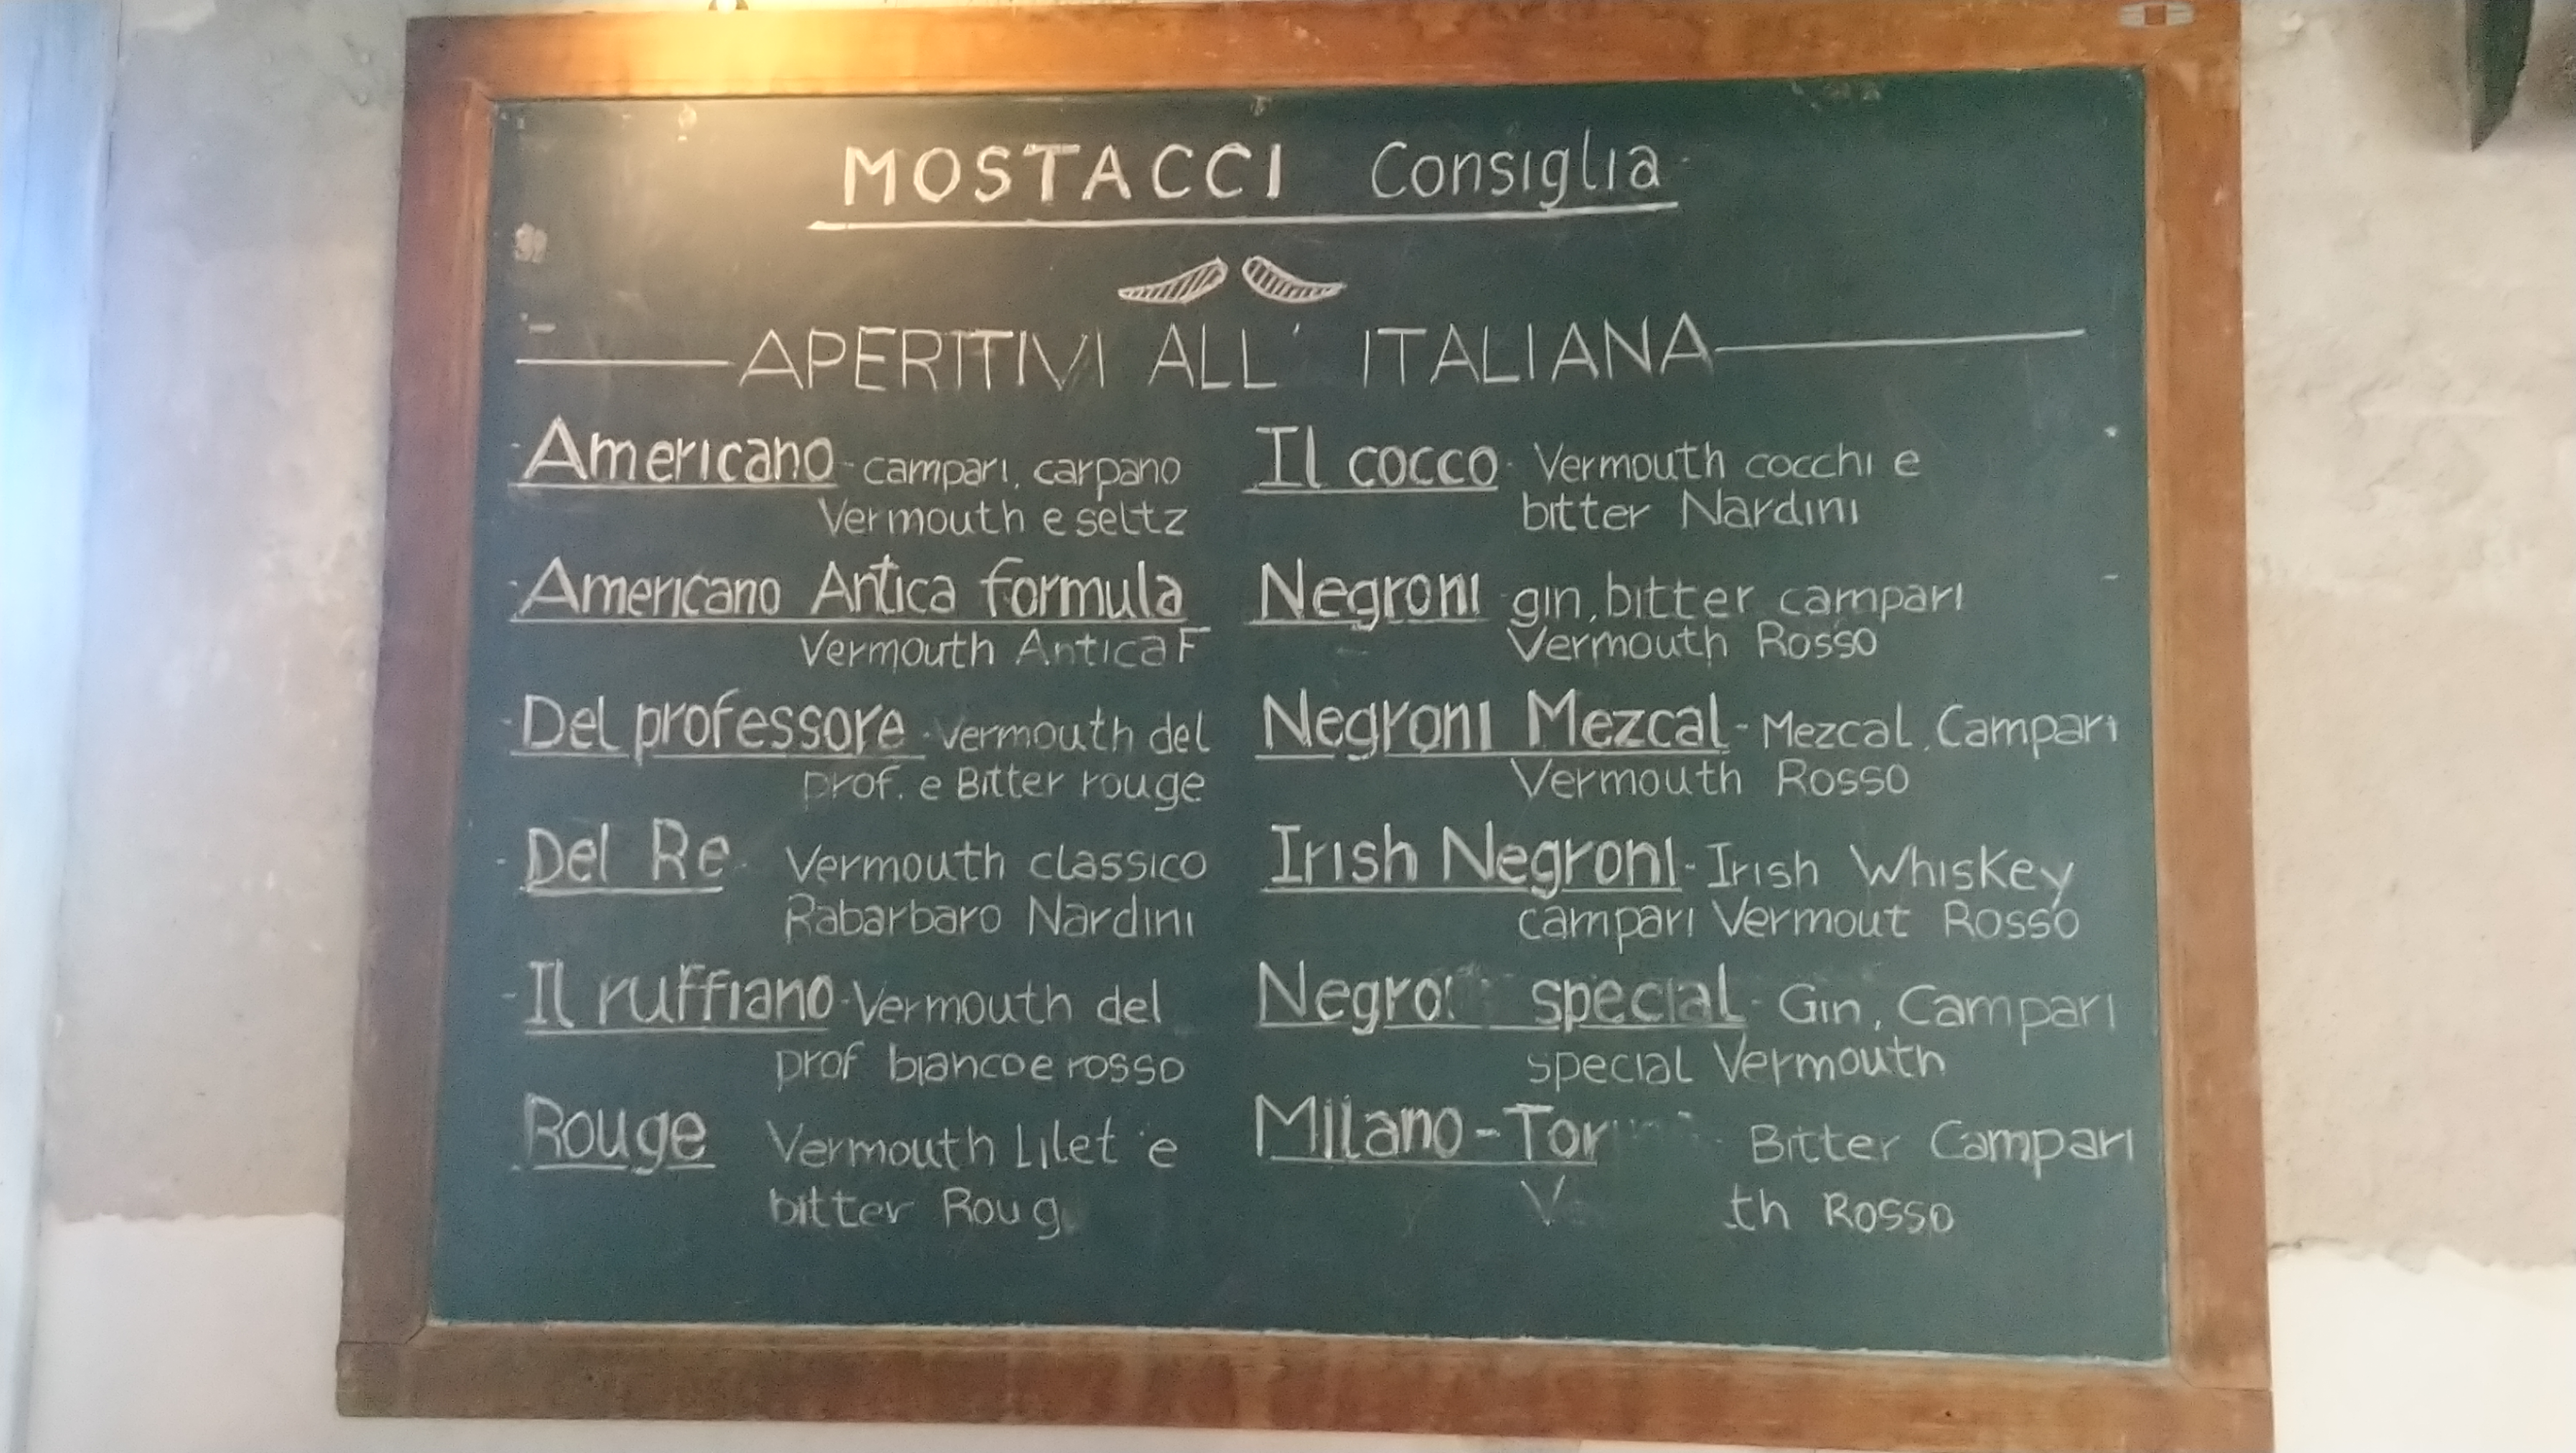 MOSTACCI Consiglia
APERITIVI ALL' ITALIANA
- Americano - campari, carpano
Vermouth e seltz
- Americano Antica formula
Vermouth Antica F
- Del professore - Vermouth del
prof. e Bitter rouge
- Del Re - Vermouth classico
Rabarbaro Nardini
- Il ruffiano - Vermouth del
prof bianco e rosso
Rouge Vermouth Lilet e
bitter Roug
Il cocco - Vermouth cocchi e
bitter Nardini
Negroni - gin, bitter campari
Vermouth Rosso
Negroni Mezcal - Mezcal, Campari
Vermouth Rosso
Irish Negroni - Irish Whiskey
campari Vermout Rosso
special - Gin, Campari
special Vermouth
Milano - Bitter Campari
Rosso